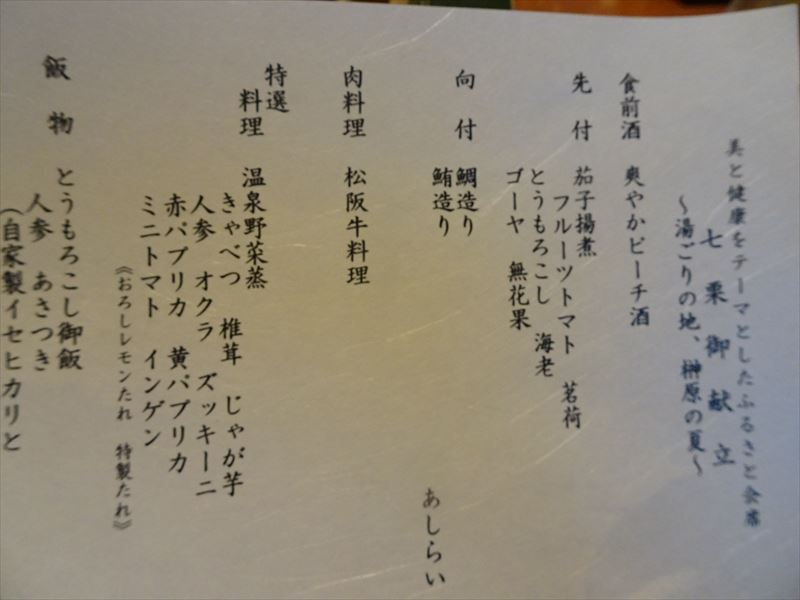 美と健康をテーマとしたふるさと会席
七栗御献立
～湯ごりの地、榊原の夏～
食前酒 爽やかピーチ酒
先付 茄子揚煮
フルーツトマト 茗荷
とうもろこし 海老
ゴーヤ 無花果
向付 鯛造り
鮪造り
あしらい
肉料理 松阪牛料理
特選
料理 温泉野菜蒸
きゃべつ 椎茸 じゃが芋
人参 オクラ ズッキーニ
赤パプリカ 黄パプリカ
ミニトマト インゲン
《おろしレモンたれ 特製たれ》
飯物 とうもろこし御飯
人参 あさつき
（自家製イセヒカリと